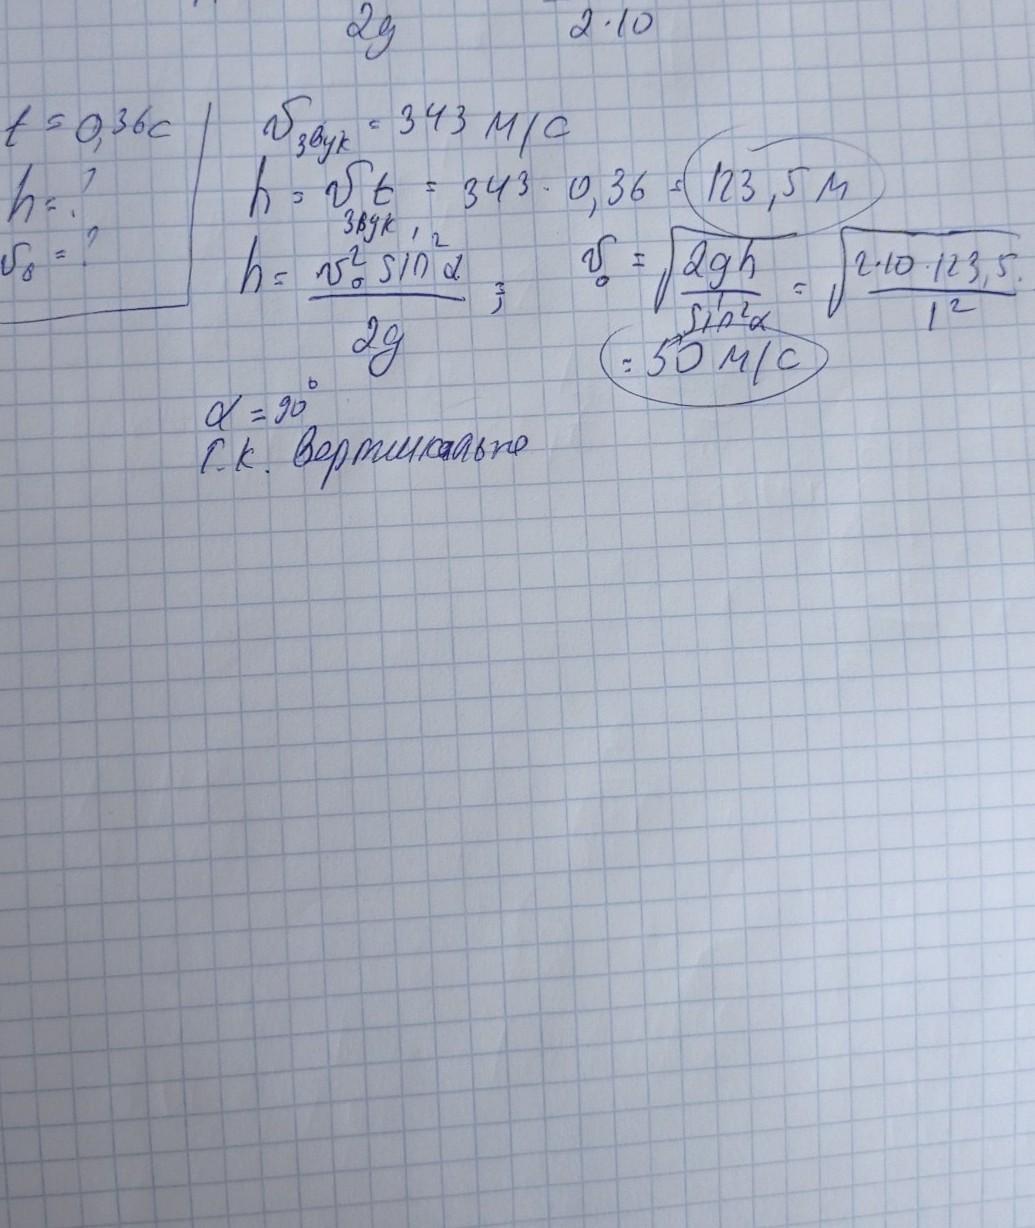 2g 2·10
t = 0,36с
h = ?
v₀ = ?
vзвук = 343 м/с
h = vзвук t = 343 · 0,36 = 123,5 м
h = v₀² sin² α / 2g ; v₀ = √(2gh / sin²α) = √(2·10·123,5 / 1²)
= 50 м/с
α = 90°
т.к. вертикально